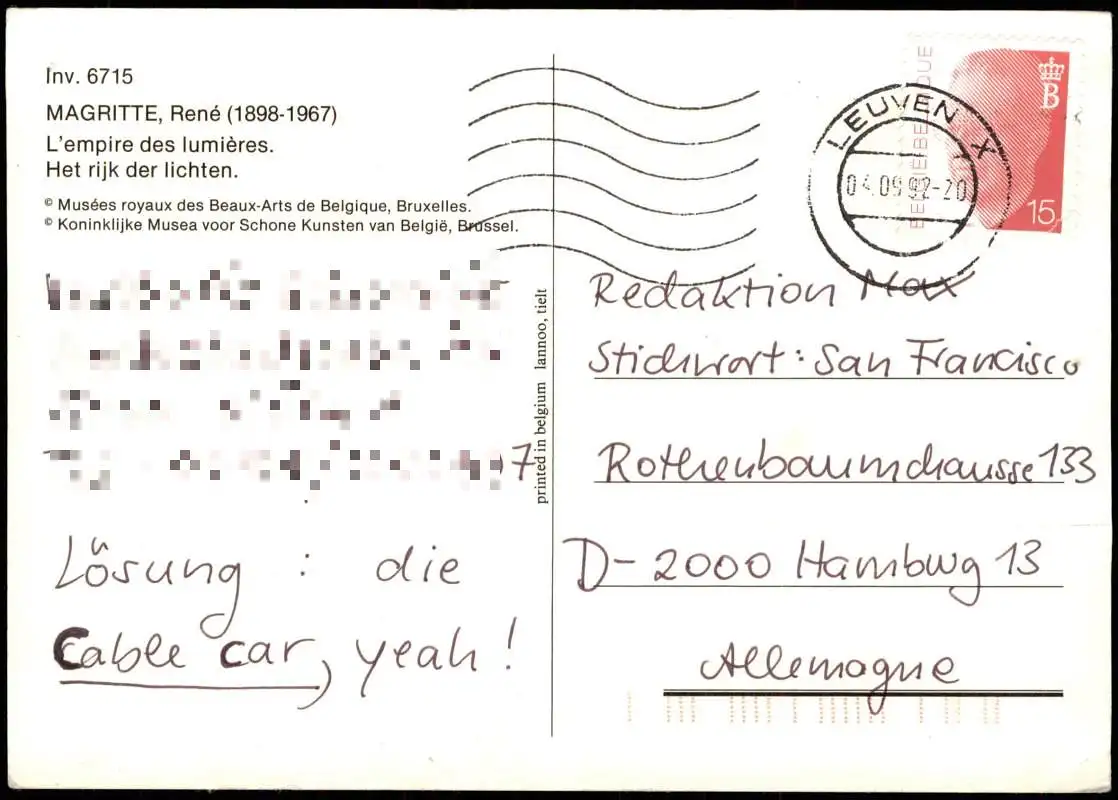 Inv. 6715
MAGRITTE, René (1898-1967)
L'empire des lumières.
Het rijk der lichten.
© Musées royaux des Beaux-Arts de Belgique, Bruxelles.
© Koninklijke Musea voor Schone Kunsten van België, Brussel.
7
Lösung : die
Cable car, yeah!
printed in belgium lannoo, tielt
LEUVEN X
04.09.92-20
B
15
Redaktion Max
Stichwort: San Francisco
Rothenbaumchausse 133
D-2000 Hamburg 13
Allemagne